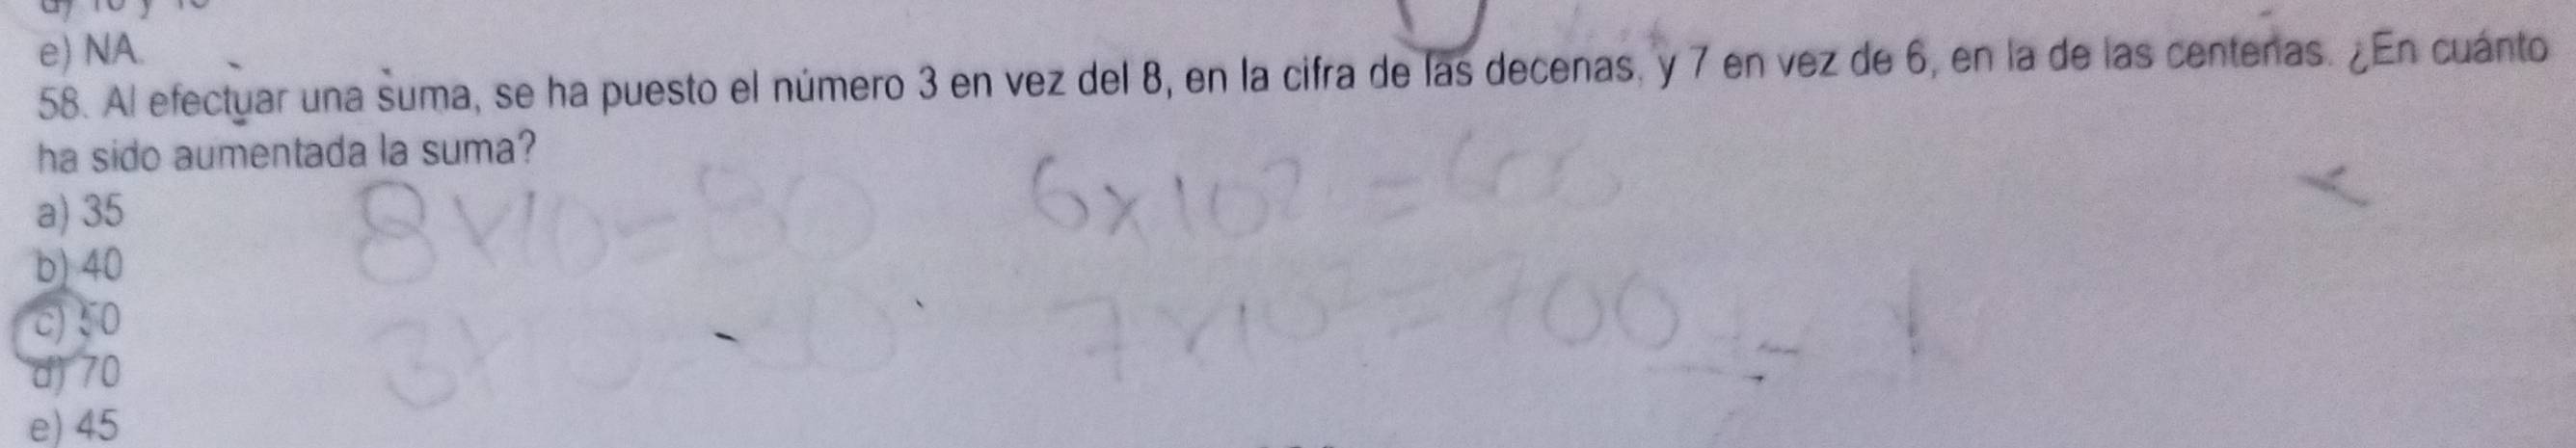 e) NA.
58. Al efectuar una suma, se ha puesto el número 3 en vez del 8, en la cifra de las decenas, y 7 en vez de 6, en la de las centenas. ¿En cuánto
ha sido aumentada la suma?
a) 35
8x10=80
6x10² = 600
b) 40
c) 50
3x10
7x10² = 700
d) 70
e) 45